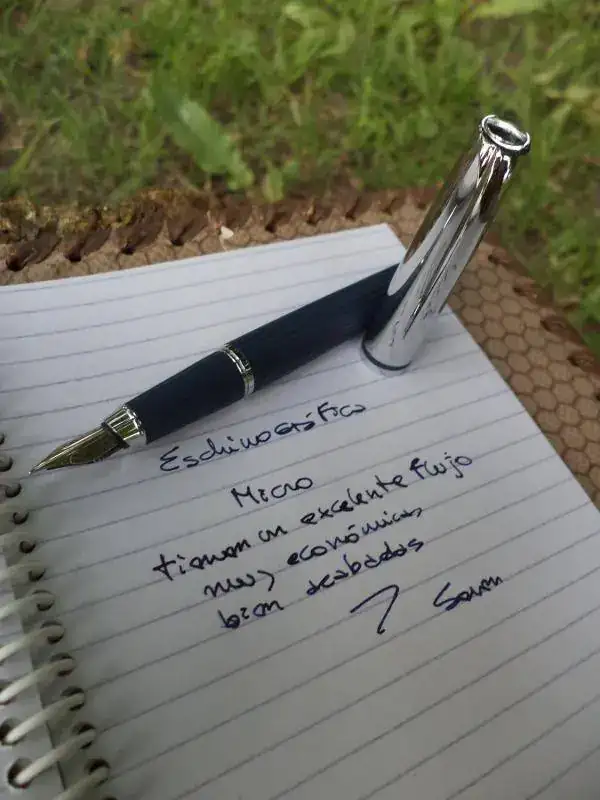 Eschinográfico
Micro
tienen un excelente flujo
muy económicas,
bien acabadas
y